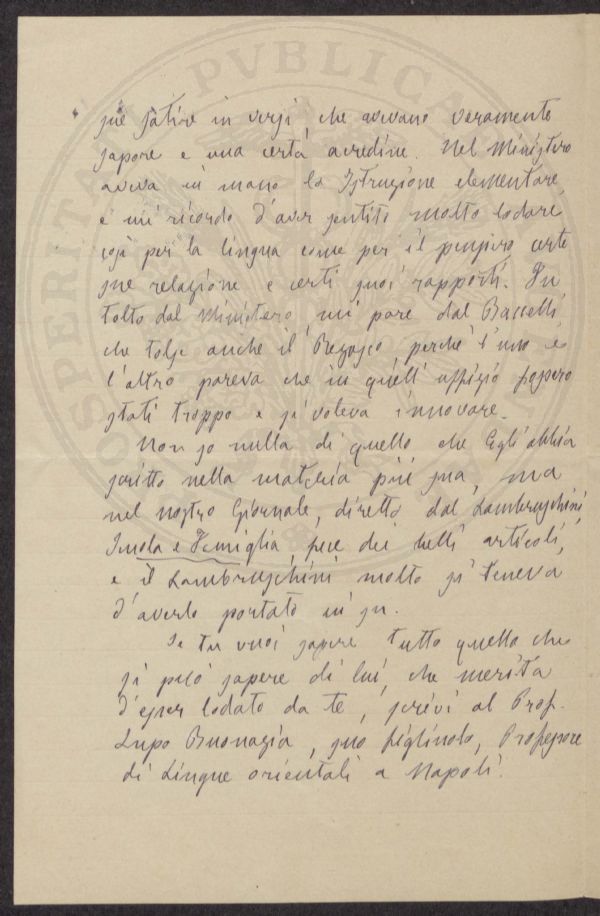 sue satire in versi, che avevano veramente
sapore e una certa acredine. Nel Ministero
aveva in mano la Istruzione elementare,
e mi ricordo d'aver sentito molto lodare
così per la lingua come per il pensiero certe
sue relazione e certi suoi rapporti. Fu
tolto dal Ministero, mi pare dal Baccelli
che tolse anche il Bezasco, perchè l'uno e
l'altro pareva che in quell'uffizio fossero
stati troppo e si voleva innovare.
Non so nulla di quello che Egli abbia
scritto nella materia più sua, ma
nel nostro Giornale, diretto dal Lambruschini,
Scuola e Famiglia, fece dei belli articoli,
e il Lambruschini molto si teneva
d'averlo portato in su.
Se tu vuoi sapere tutto quello che
si può sapere di lui, che merita
d'esser lodato da te, scrivi al Prof.
Lupo Buonazia, suo figliuolo, Professore
di Lingue orientali a Napoli.
PVBLICA
PROSPERITA